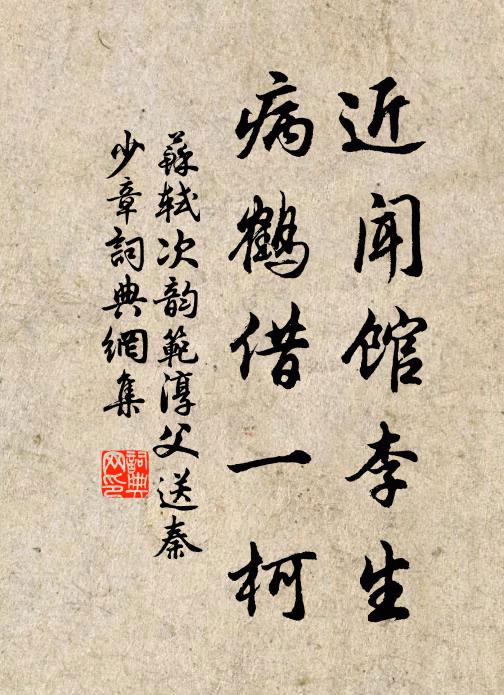 近闻馆李生
病鹤借一柯
蘇轼次韵範淳父送秦
少章詞典網集
詞典
网印